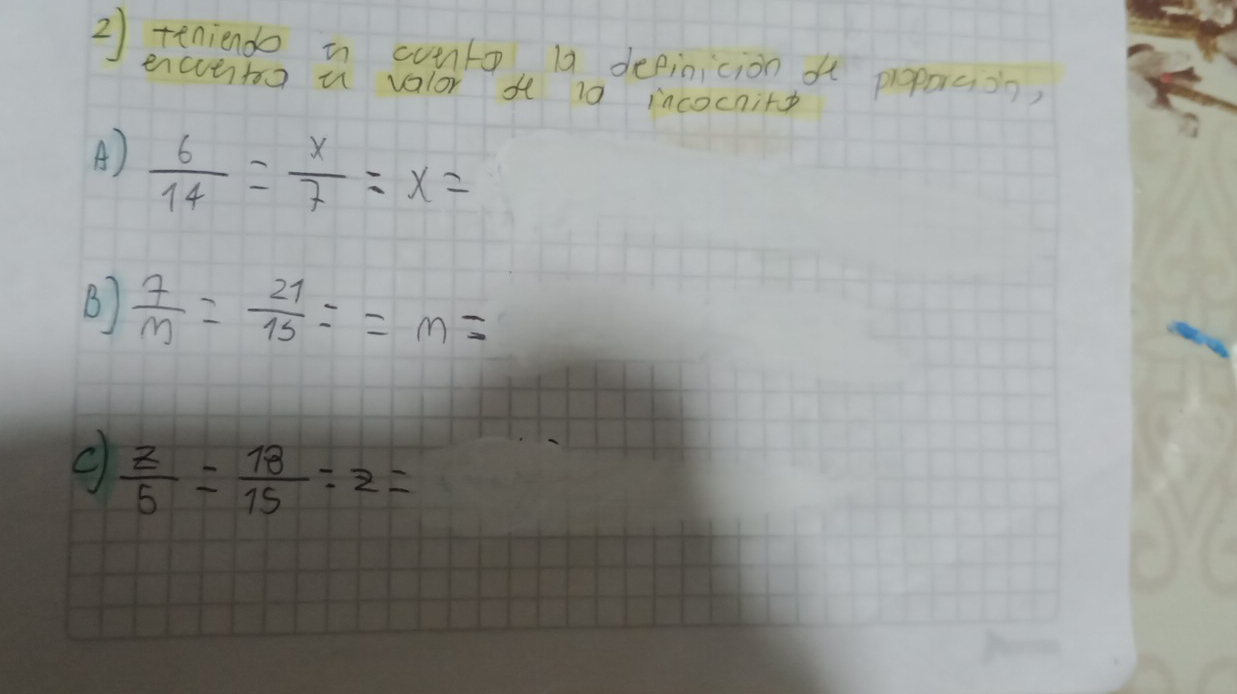 2) teniendo en cuenta la definición de proporción,
encuentra el valor de la incocnita
A) 6/14 = x/7 = x =
B) 7/m = 21/15 = = m =
C) z/5 = 18/15 = z =